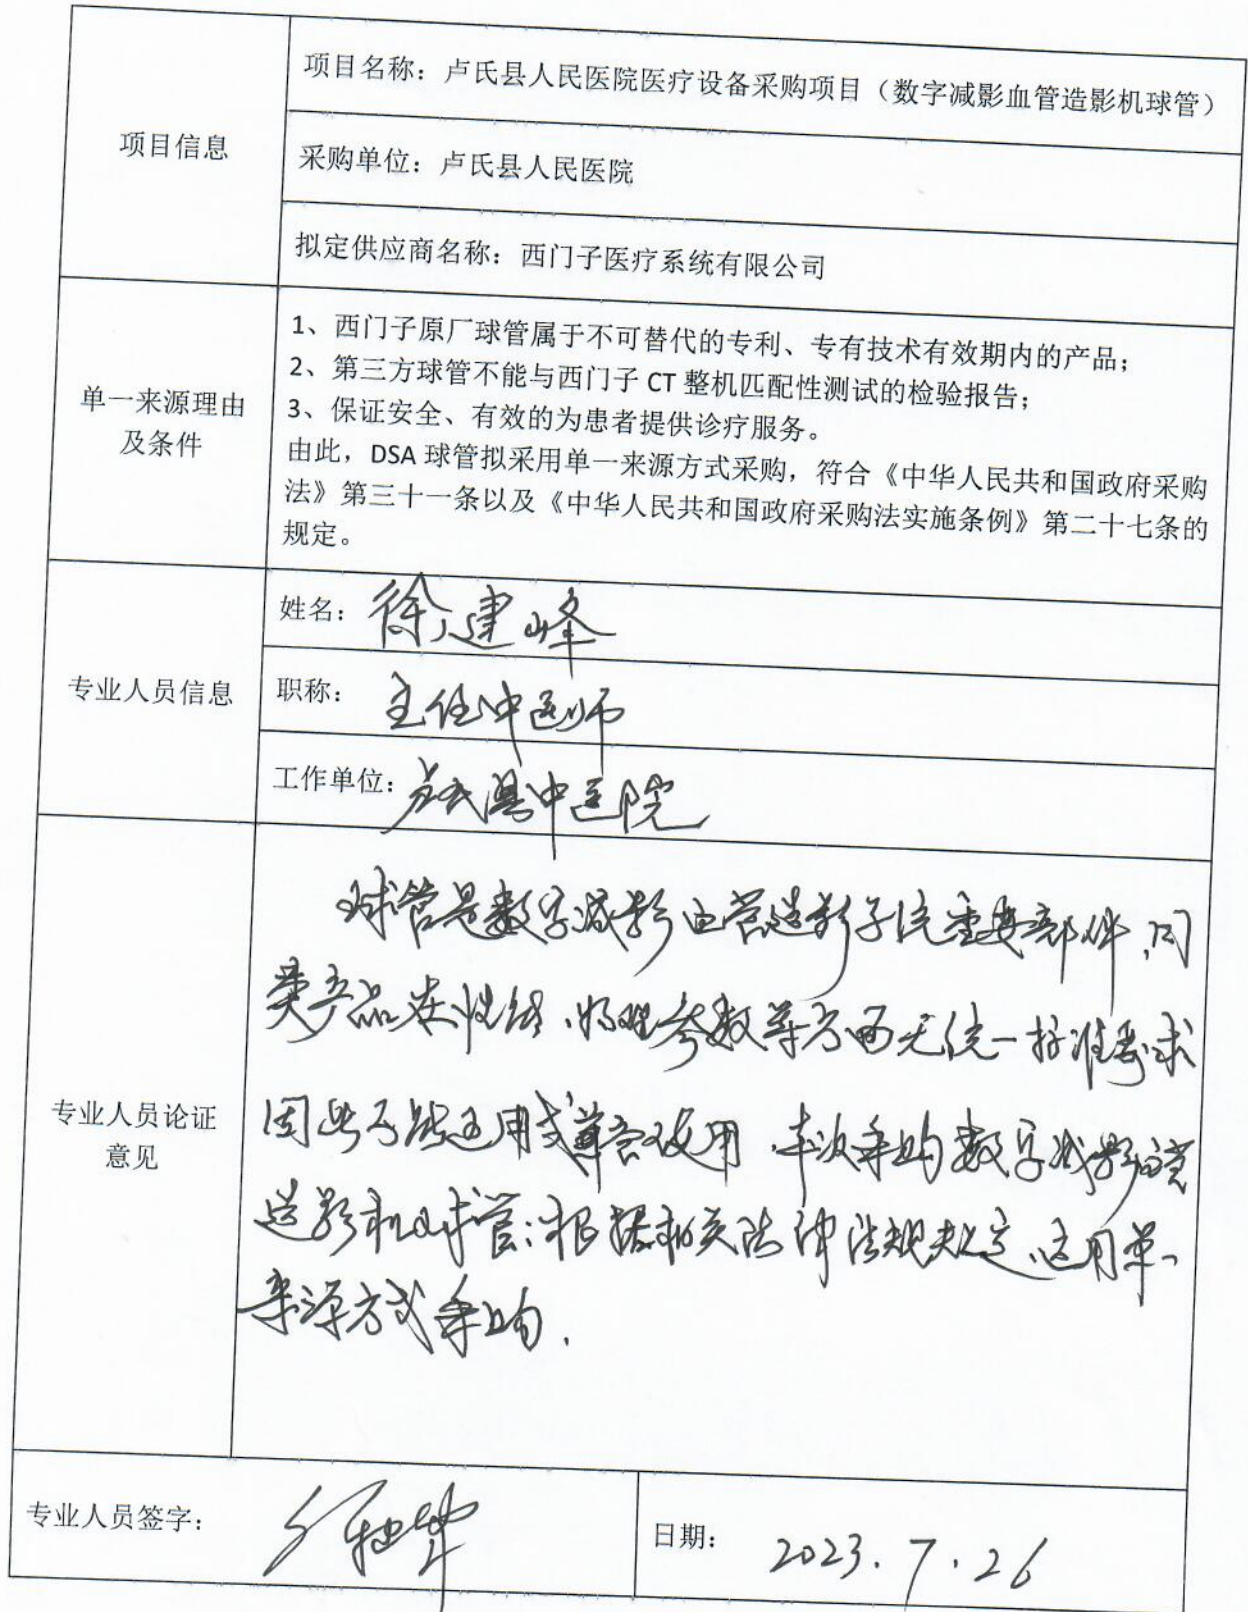 项目信息
项目名称：卢氏县人民医院医疗设备采购项目（数字减影血管造影机球管）
采购单位：卢氏县人民医院
拟定供应商名称：西门子医疗系统有限公司
单一来源理由
及条件
1、西门子原厂球管属于不可替代的专利、专有技术有效期内的产品；
2、第三方球管不能与西门子 CT 整机匹配性测试的检验报告；
3、保证安全、有效的为患者提供诊疗服务。
由此，DSA 球管拟采用单一来源方式采购，符合《中华人民共和国政府采购
法》第三十一条以及《中华人民共和国政府采购法实施条例》第二十七条的
规定。
专业人员信息
姓名：徐建峰
职称：主任中医师
工作单位：卢氏县中医院
专业人员论证
意见
球管是数字减影血管造影系统重要部件，同
类产品在性能、物理参数等方面无统一标准要求
因此不能通用或兼容使用，本次采购数字减影血管
造影机球管；根据相关法律法规规定，适用单一
来源方式采购.
专业人员签字：
日期：2023.7.26